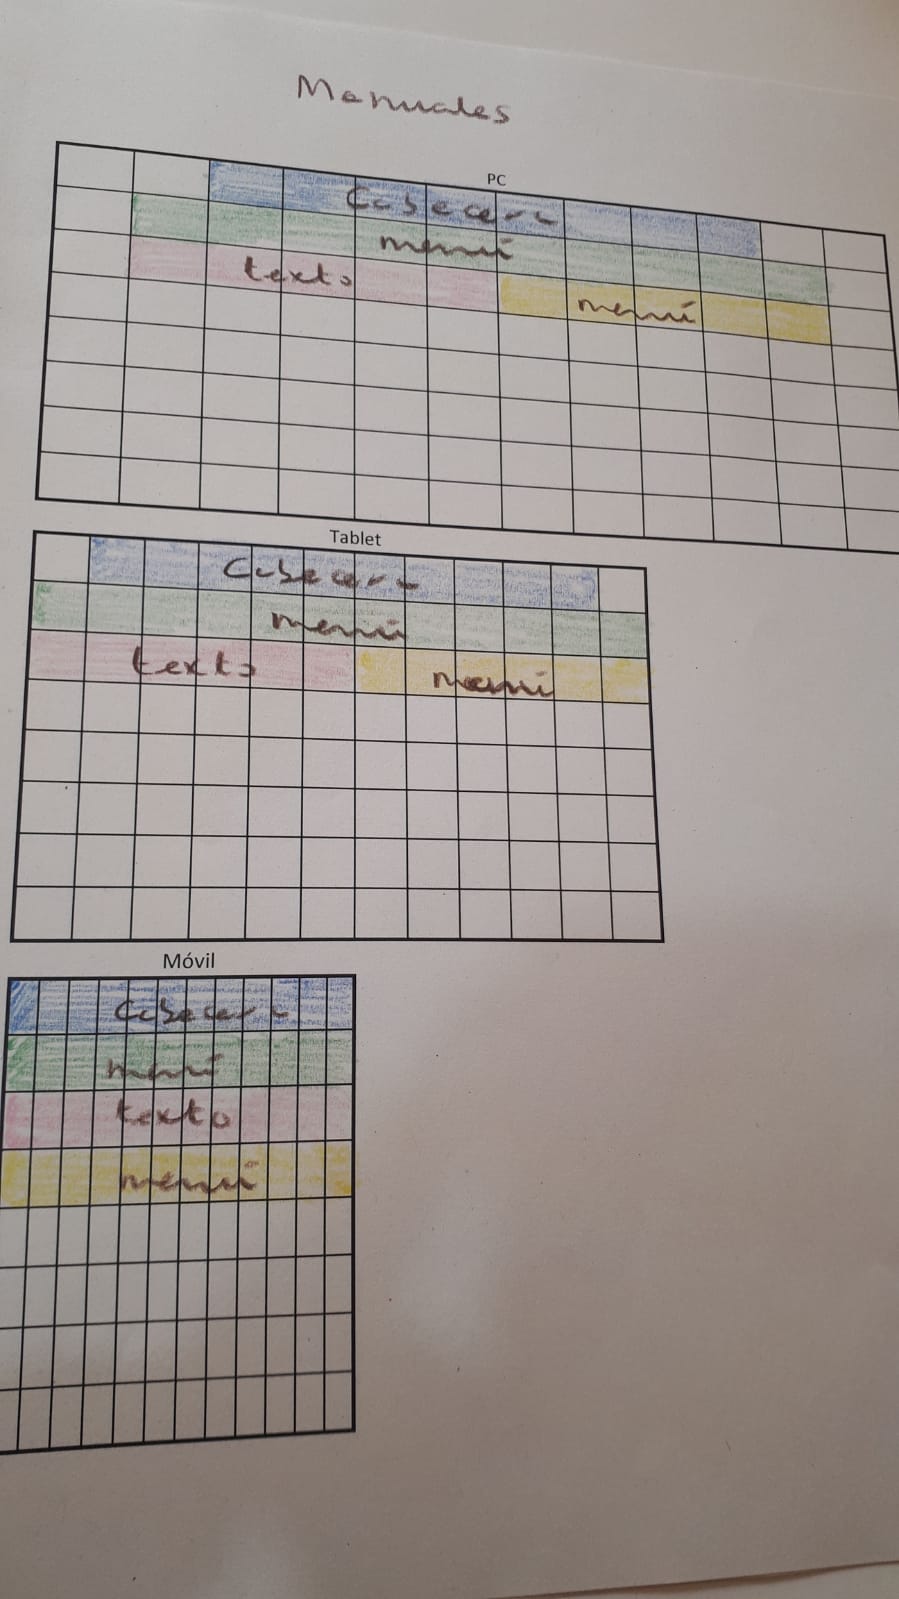 Manuales
PC
Cabecera
menú
texto menú
Tablet
Cabecera
menú
texto menú
Móvil
Cabecera
menú
texto
menú